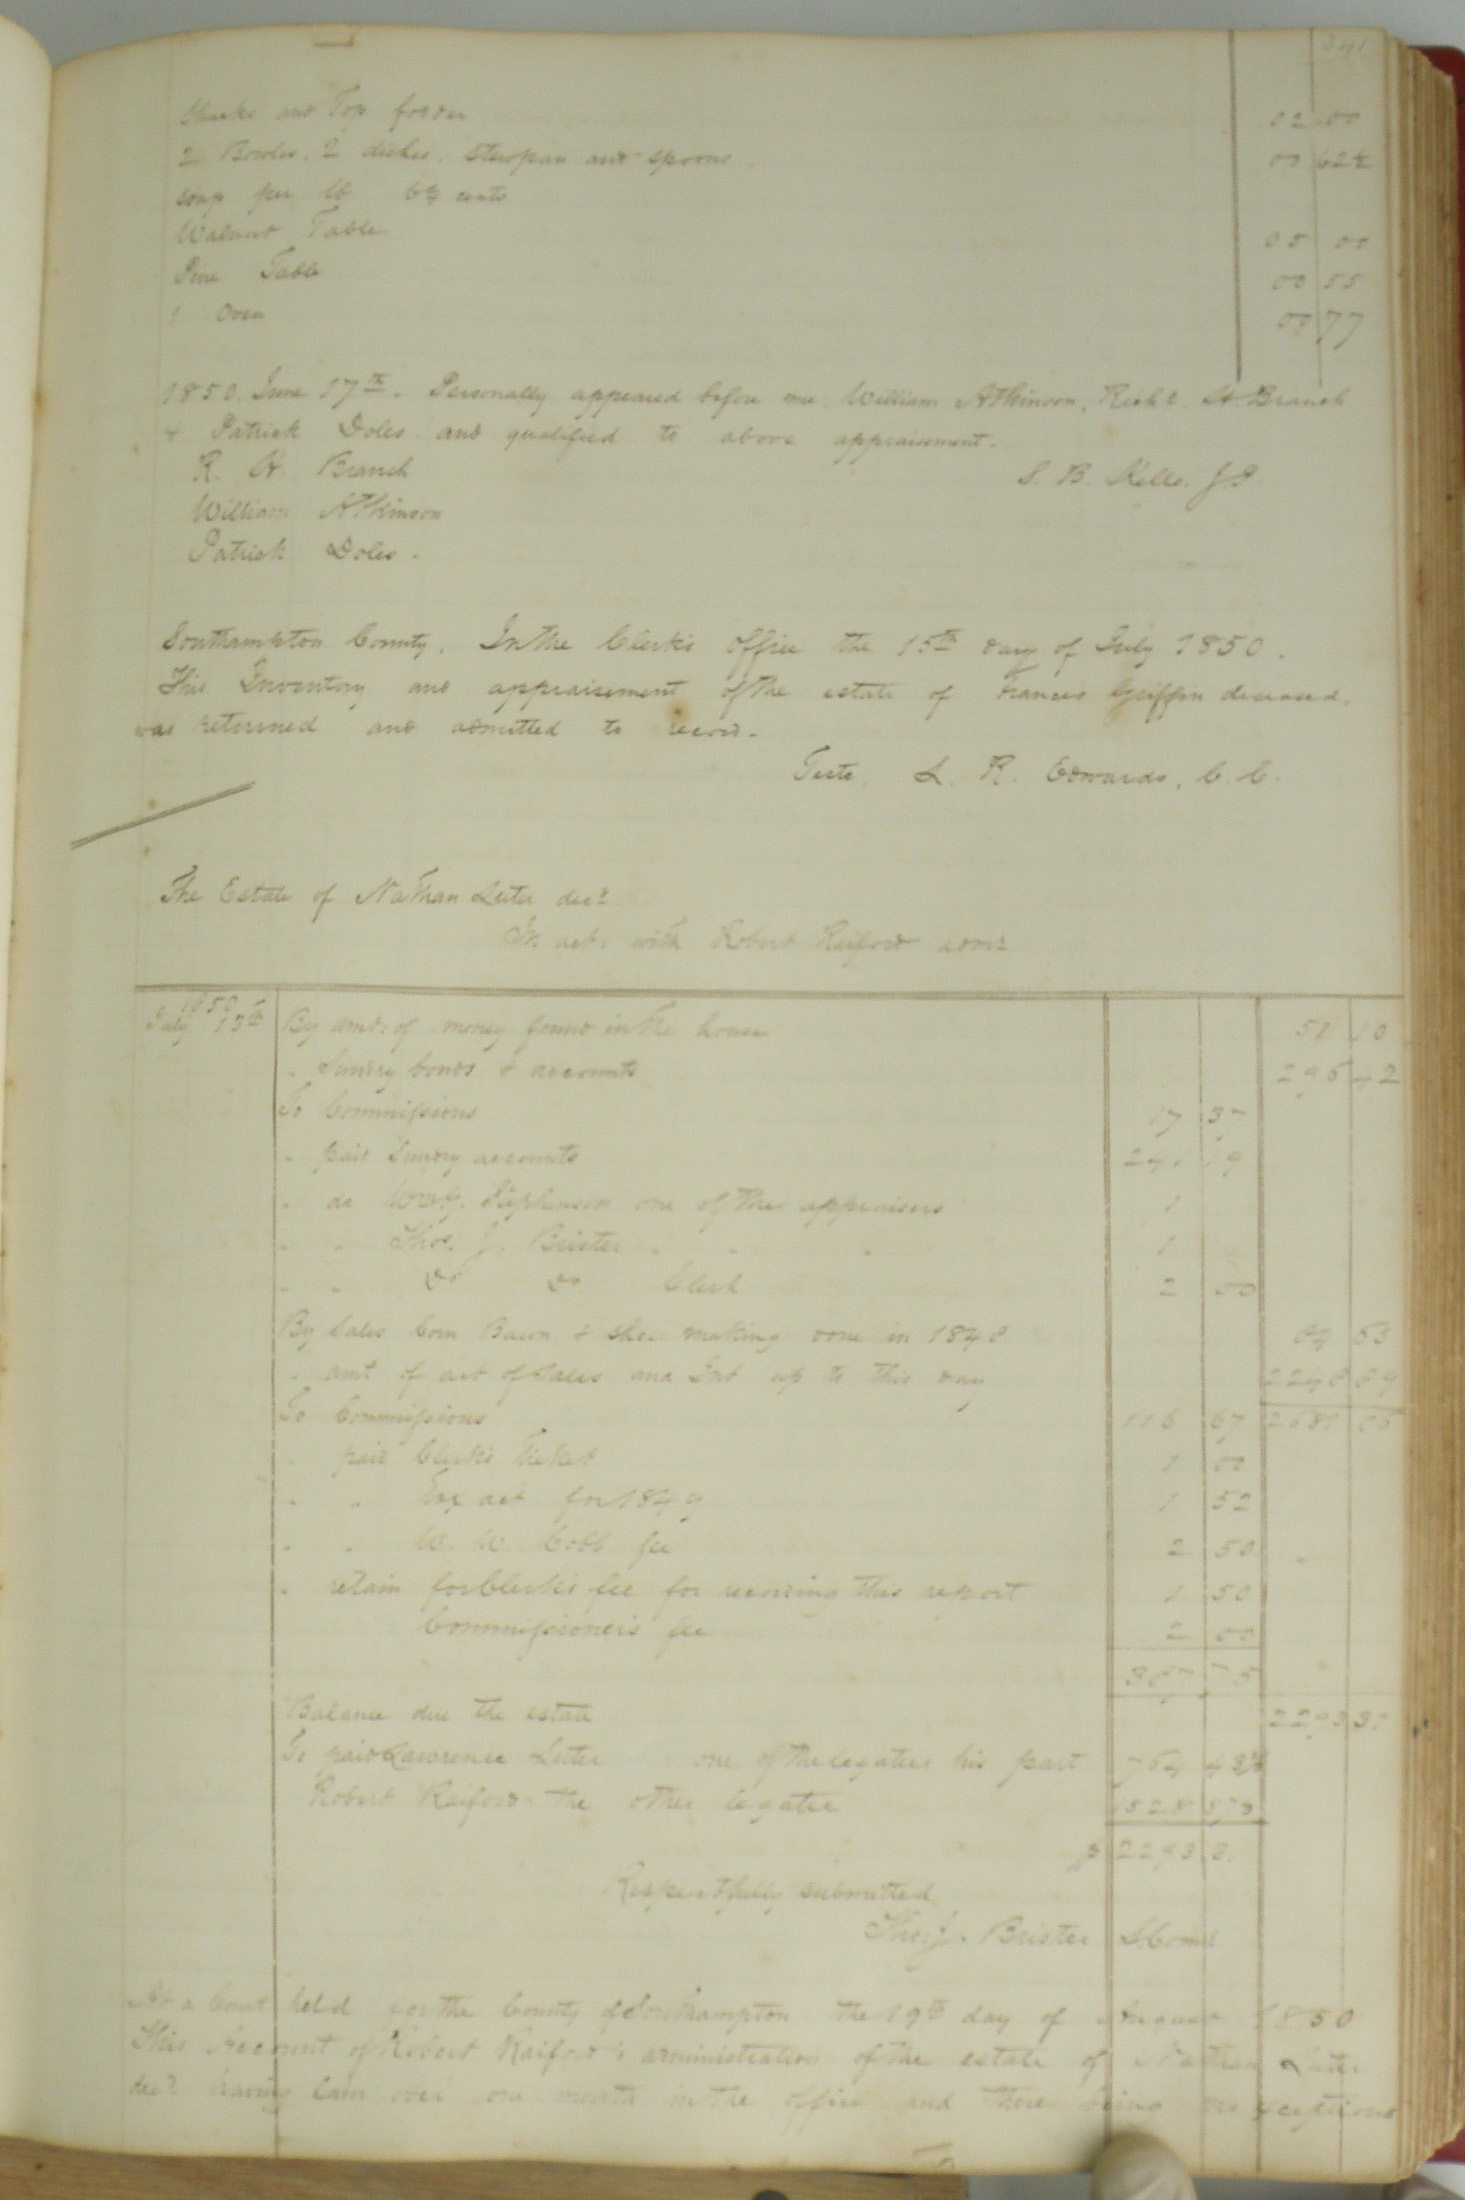 341
Shucks and Top fodder 02 00
2 Bowls, 2 dishes, stewpan and spoons 00 62½
soap per lb 6¼ cents
Walnut Table 05 00
Pine Table 00 55
1 Oven 00 77
1850. June 17th. Personally appeared before me, William Atkinson, Richd. H. Branch
& Patrick Doles and qualified to above appraisement.
R. H. Branch S. B. Kello. J P
William Atkinson
Patrick Doles.
Southampton County. In the Clerk's Office the 15th day of July 1850.
This Inventory and appraisement of the estate of Frances Griffin deceased,
was returned and admitted to record.
Teste, L. R. Edwards, C. C.
The Estate of Nathan Luter decd
In act. with Robert Raiford admr
1850
July 15th By amt. of money found in the house 51 10
" Sundry bonds & accounts 296 42
To Commissions 17 37
" paid Sundry accounts 241 19
" do Stephenson one of the appraisers 1
" " Thos. J. Brister " " " 1
" " do do Clerk 2 00
By Sales Corn Bacon & shoe making done in 1848 53
" amt of act of Sales and Int up to this day
To Commissions 116 67
" paid Clerk's Ticket 1 00
" " act for 1849 1 52
" " W. W. Cobb fee 2 50
" retain for Clerk's fee for recording this report 1 50
Commissioner's fee 2 00
387 75
Balance due the estate 2293
To paid Lawrence Luter one of the legatees his part 764
Robert Raiford the other legatee 1528
$ 2293
Respectfully submitted
Thos J. Brister
At a Court held for the County of Southampton the 19th day of August 1850
This Account of Robert Raiford's administration of the estate of Nathan Luter
decd having lain over one month in the office and there being no exceptions
To